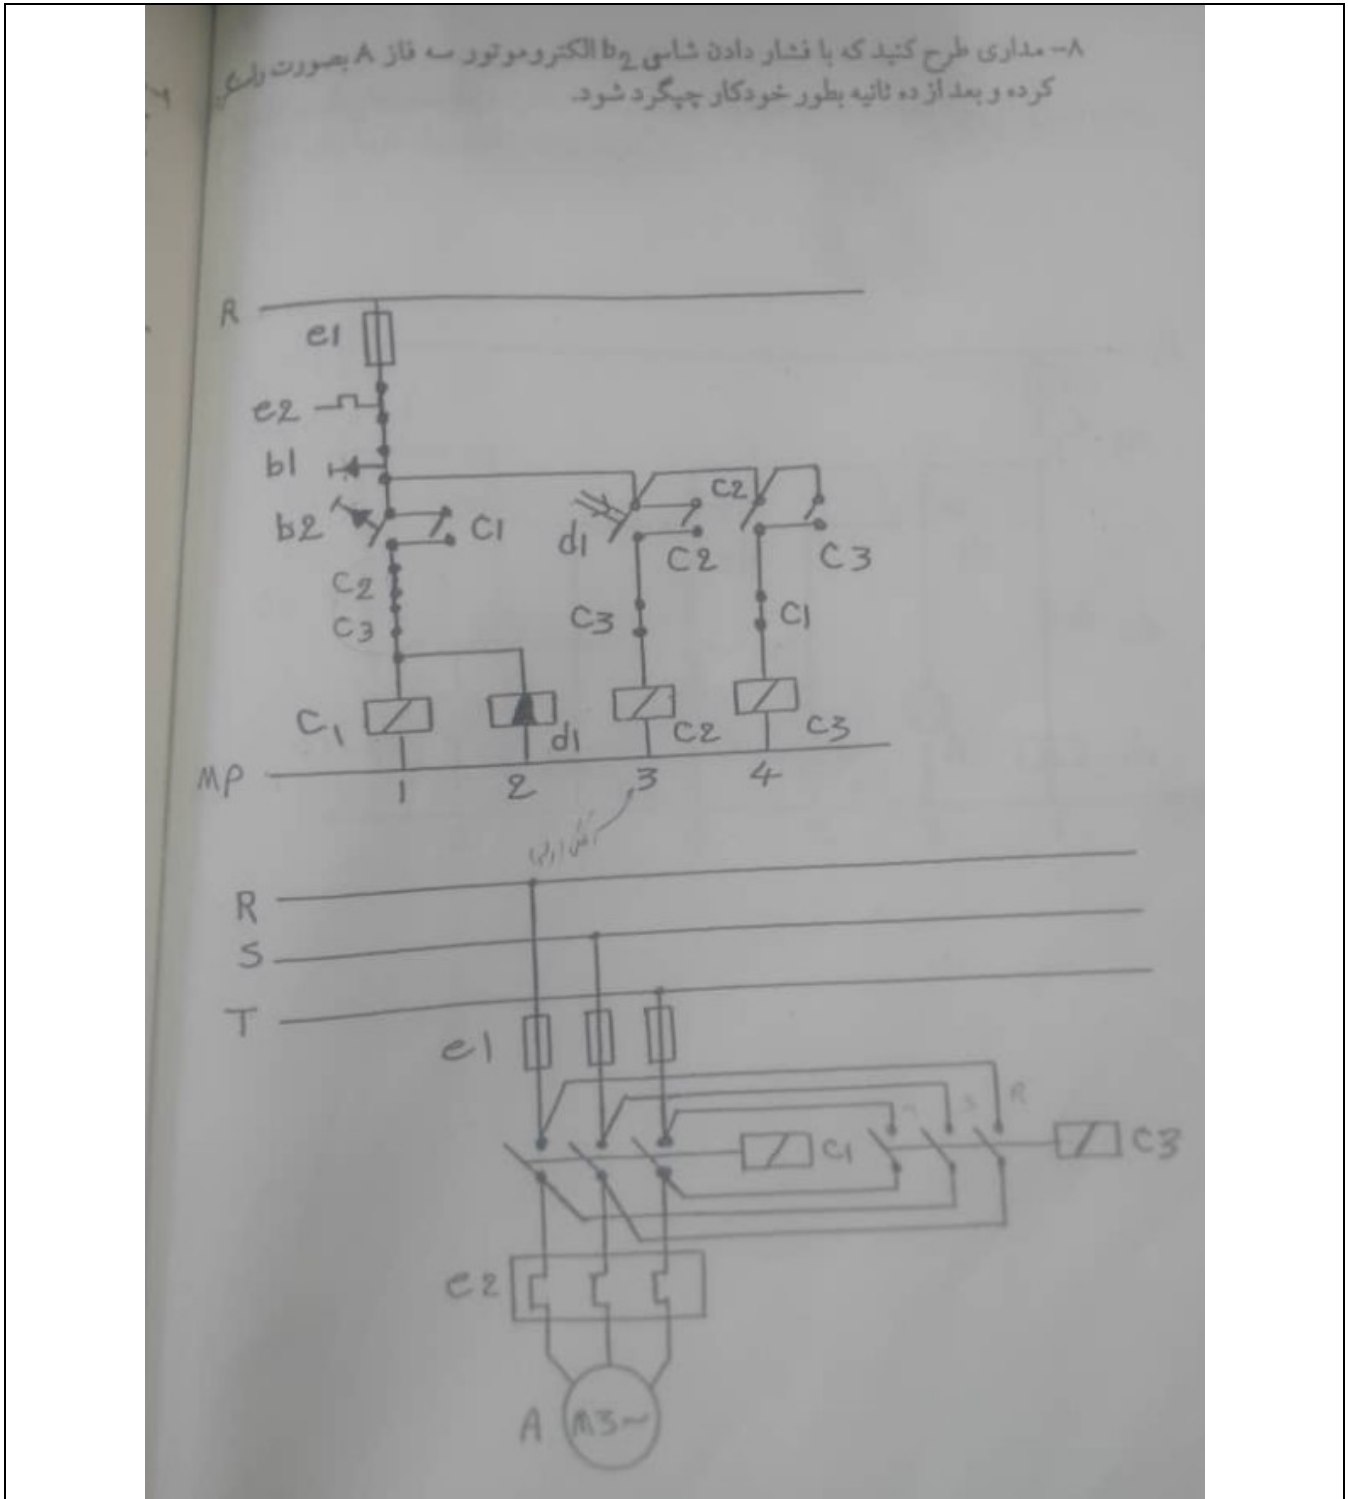 ۸- مداری طرح کنید که با فشار دادن شاسی b2 الکتروموتور سه فاز A بصورت
کرده و بعد از ده ثانیه بطور خودکار چپگرد شود.
R
e1
e2
b1
b2 C1 d1 C2 C2 C3
C2
C3 C3 C1
C1 d1 C2 C3
MP
1 2 3 4
R
S
T
e1
S R
C1 C3
e2
A M3~